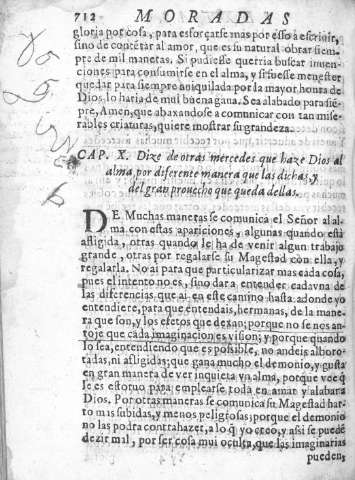 712 MORADAS
gloria por cosa, para esforçarse mas por esso a escrivir,
sino de contētar al amor, que es su natural obrar siem-
pre de mil maneras. Si pudiesse querria buscar inven-
ciones para consumirse en el alma, y si fuesse menester
quedar para siempre aniquilada por la mayor honra de
Dios lo haria de mui buena gana. Sea alabado para siē-
pre, Amen, que abaxandose a comunicar con tan mise-
rables criaturas, quiere mostrar su grandeza.
CAP. X. Dize de otras mercedes que haze Dios al
alma por diferente manera que las dichas, y
del gran provecho que queda dellas.
DE Muchas maneras se comunica el Señor al al-
ma con estas apariciones, algunas quando está
afligida, otras quando le ha de venir algun trabajo
grande, otras por regalarse su Magestad con ella, y
regalarla. No ai para que particularizar mas cada cosa,
pues el intento no es, sino dar a entender cada vna de
las diferencias que ai en este camino hasta adonde yo
entendiere, para que entendais, hermanas, de la mane-
ra que son, y los efetos que dexan; porque no se nos an-
toje que cada imaginacion es vision; y porque quando
lo sea, entendiendo que es possible, no andeis alboro-
tadas, ni afligidas; que gana mucho el demonio, y gusta
en gran manera de ver inquieta vn alma, porque vee q̄
le es estorvo para emplearse toda en amar y alabar a
Dios. Por otras maneras se comunica su Magestad har-
to mas subidas, y menos peligrosas; porque el demonio
no las podra contrahazer, a lo q̄ yo creo, y assi se puedē
dezir mal, por ser cosa mui oculta, que las imaginarias
pueden,